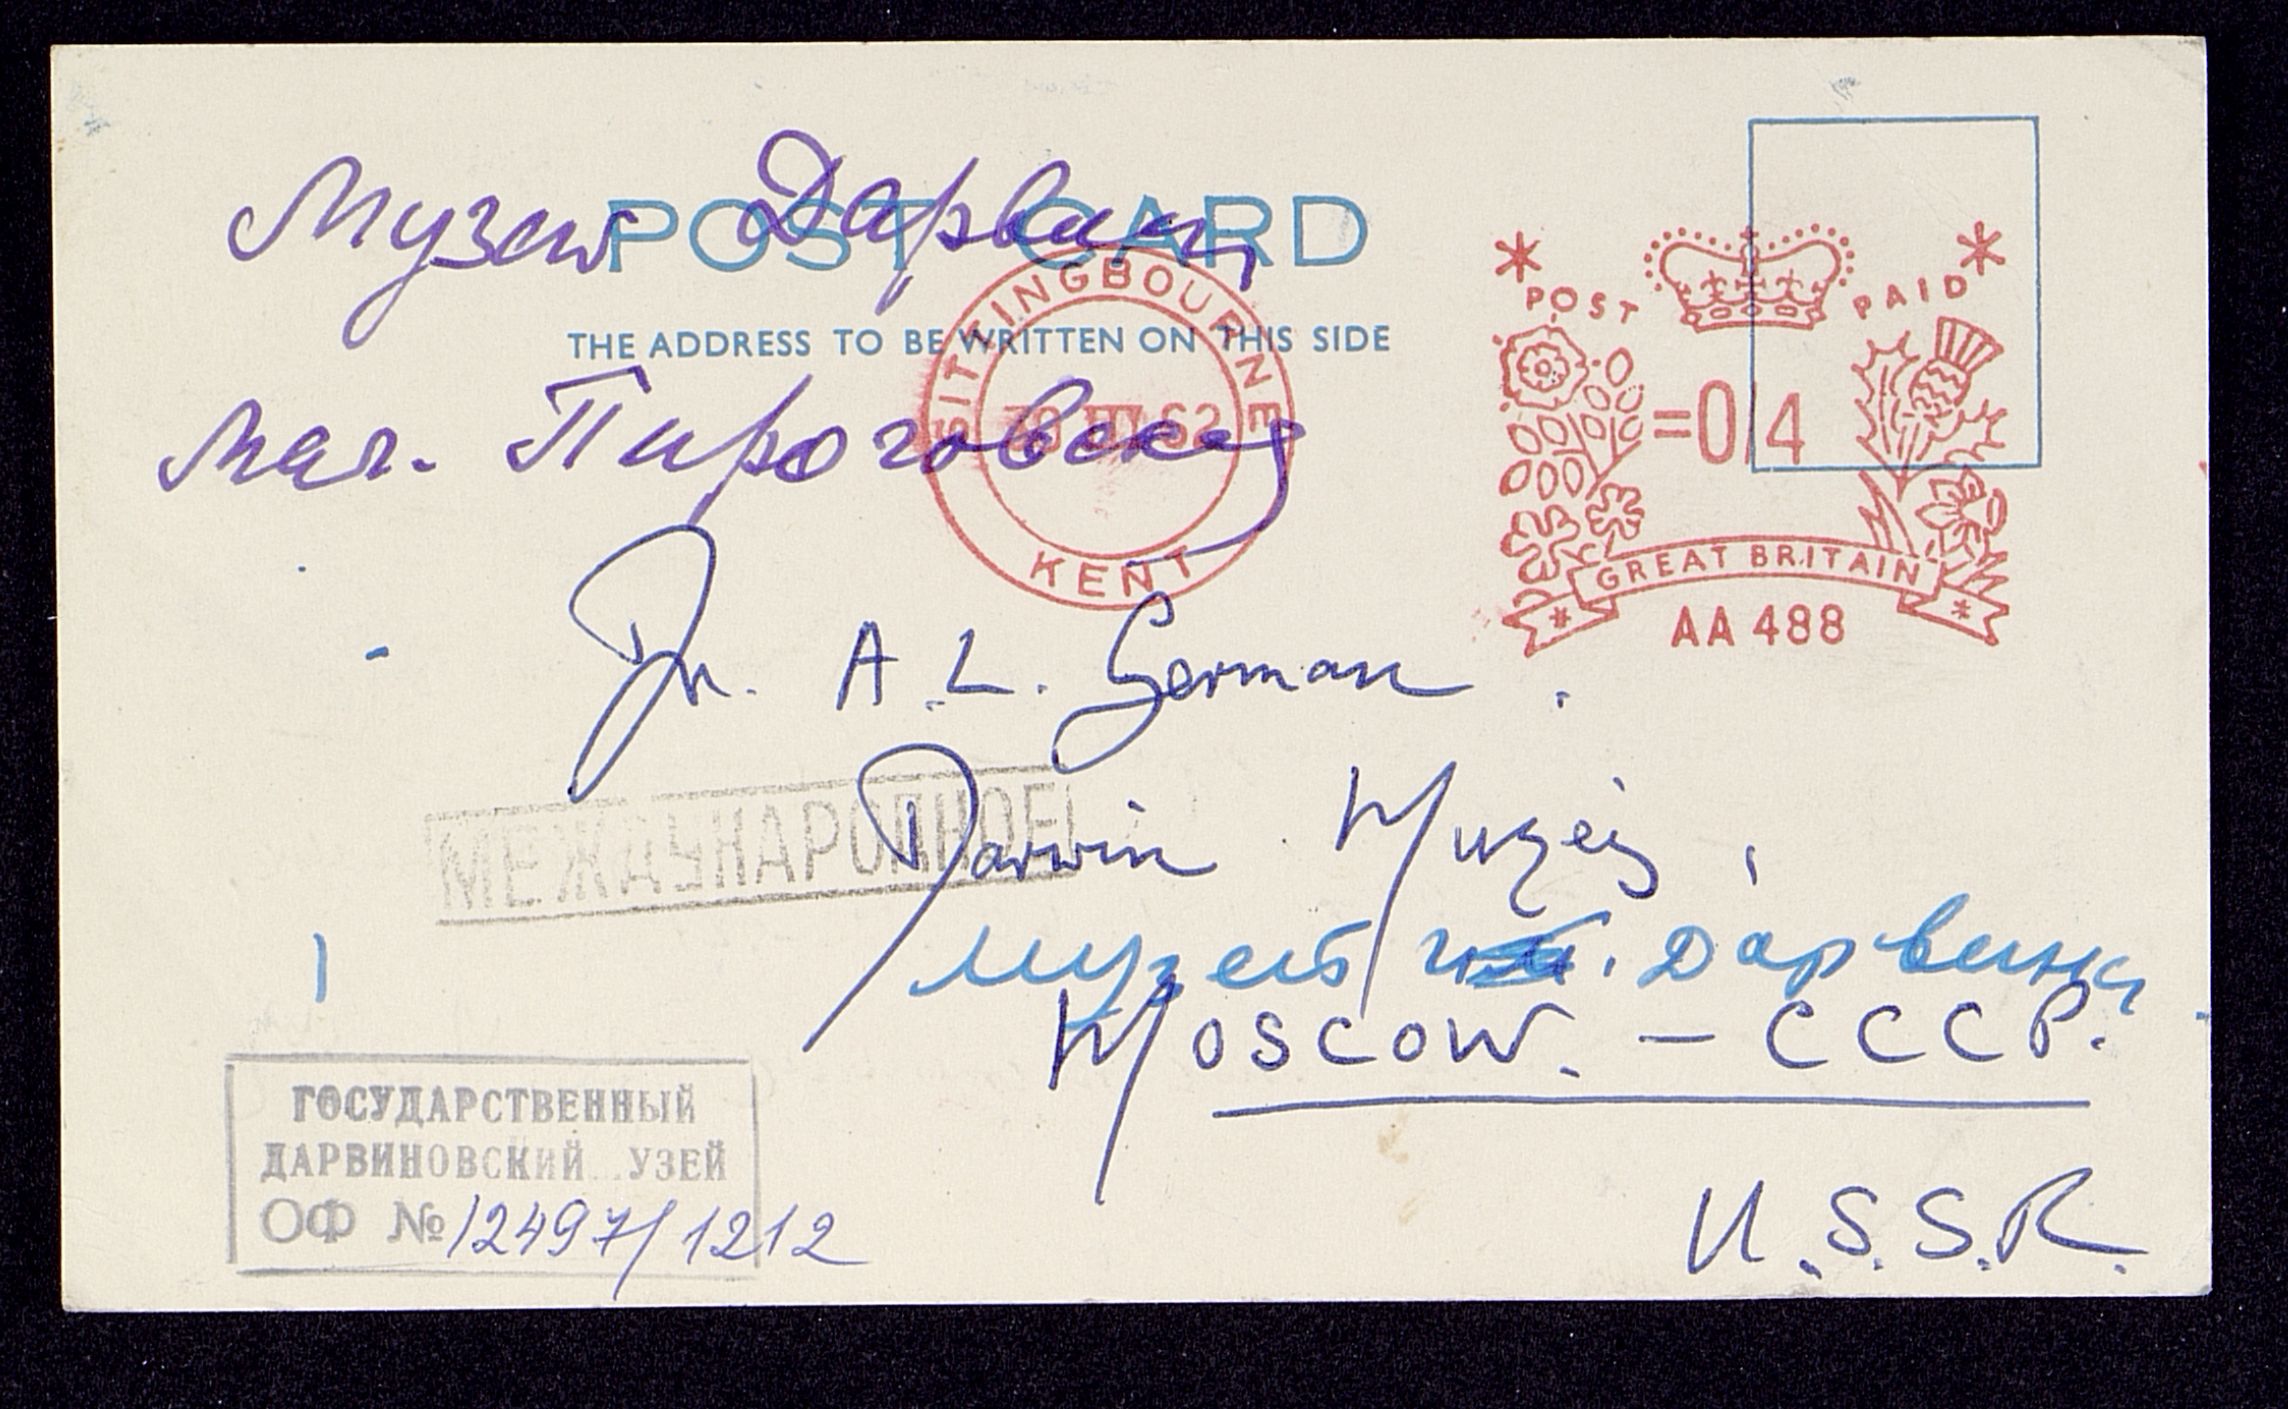 Музей Дарвина
POST CARD
THE ADDRESS TO BE WRITTEN ON THIS SIDE
Мал. Пироговская
SITTINGBOURNE
62
KENT
POST PAID
=0/4
GREAT BRITAIN
AA 488
Dr. A. L. German
Darwin Muzéj,
МЕЖДУНАРОДНОЕ
музей Дарвина
Moscow. – CCCP.
U.S.S.R.
ГОСУДАРСТВЕННЫЙ
ДАРВИНОВСКИЙ УЗЕЙ
ОФ № 12497/1212